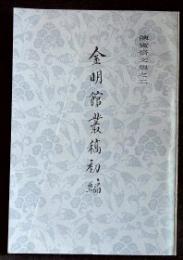 陳寅恪文集之二
金明館叢稿初編